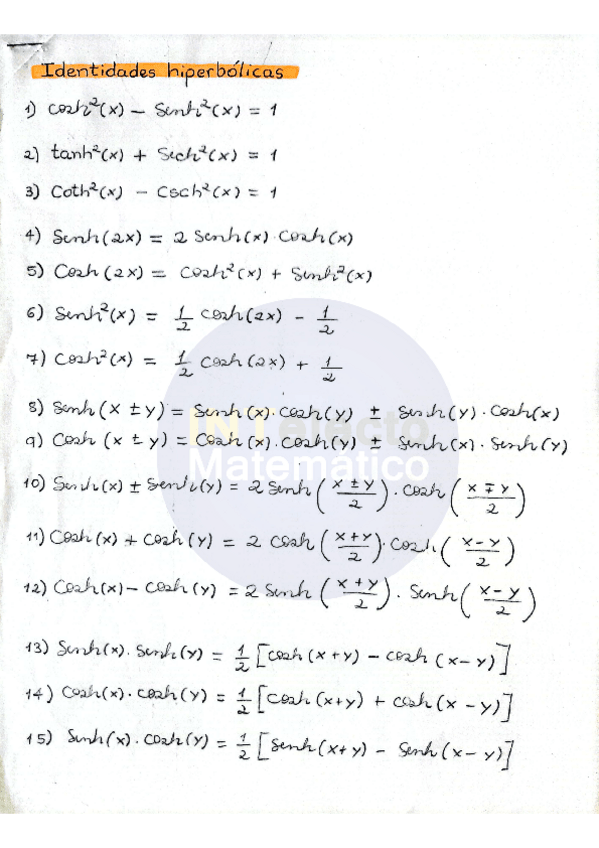 Identidades hiperbólicas
1) Cosh²(x) – Senh²(x) = 1
2) tanh²(x) + Sech²(x) = 1
3) Coth²(x) – Csch²(x) = 1
4) Senh(2x) = 2 Senh(x)·Cosh(x)
5) Cosh(2x) = Cosh²(x) + Senh²(x)
6) Senh²(x) = 1/2 cosh(2x) – 1/2
7) Cosh²(x) = 1/2 Cosh(2x) + 1/2
8) Senh(x ± y) = Senh(x)·Cosh(y) ± Senh(y)·Cosh(x)
9) Cosh(x ± y) = Cosh(x)·Cosh(y) ± Senh(x)·Senh(y)
INTelecto
Matemático
10) Senh(x) ± Senh(y) = 2 Senh((x ± y)/2)·Cosh((x ∓ y)/2)
11) Cosh(x) + Cosh(y) = 2 Cosh((x+y)/2)·Cosh((x–y)/2)
12) Cosh(x) – Cosh(y) = 2 Senh((x+y)/2)·Senh((x–y)/2)
13) Senh(x)·Senh(y) = 1/2 [cosh(x+y) – cosh(x–y)]
14) Cosh(x)·cosh(y) = 1/2 [cosh(x+y) + cosh(x–y)]
15) Senh(x)·cosh(y) = 1/2 [Senh(x+y) – Senh(x–y)]